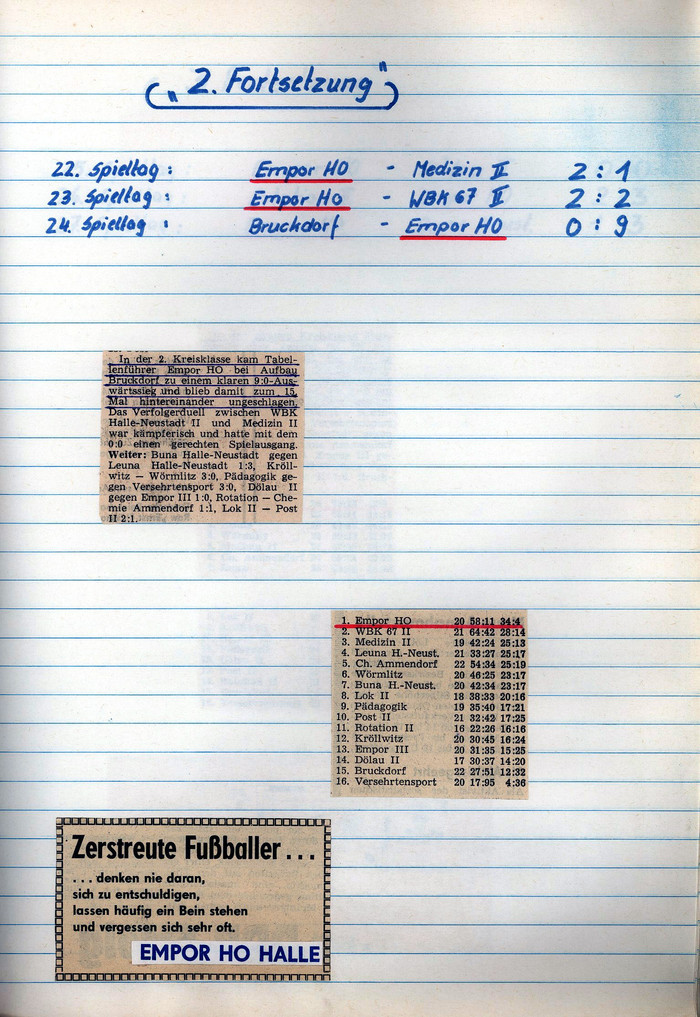 („2. Fortsetzung")
22. Spieltag : Empor HO - Medizin II 2 : 1
23. Spieltag : Empor HO - WBK 67 II 2 : 2
24. Spieltag : Bruckdorf - Empor HO 0 : 9
In der 2. Kreisklasse kam Tabel-
lenführer Empor HO bei Aufbau
Bruckdorf zu einem klaren 9:0-Aus-
wärtssieg und blieb damit zum 15.
Mal hintereinander ungeschlagen.
Das Verfolgerduell zwischen WBK
Halle-Neustadt II und Medizin II
war kämpferisch und hatte mit dem
0:0 einen gerechten Spielausgang.
Weiter: Buna Halle-Neustadt gegen
Leuna Halle-Neustadt 1:3, Kröll-
witz — Wörmlitz 3:0, Pädagogik ge-
gen Versehrtensport 3:0, Dölau II
gegen Empor III 1:0, Rotation — Che-
mie Ammendorf 1:1, Lok II — Post
II 2:1.
1. Empor HO 20 58:11 34:4
2. WBK 67 II 21 64:42 28:14
3. Medizin II 19 42:24 25:13
4. Leuna H.-Neust. 21 33:27 25:17
5. Ch. Ammendorf 22 54:34 25:19
6. Wörmlitz 20 46:25 23:17
7. Buna H.-Neust. 20 42:34 23:17
8. Lok II 18 38:33 20:16
9. Pädagogik 19 35:40 17:21
10. Post II 21 32:42 17:25
11. Rotation II 16 22:26 16:16
12. Kröllwitz 20 30:45 16:24
13. Empor III 20 31:35 15:25
14. Dölau II 17 30:37 14:20
15. Bruckdorf 22 27:51 12:32
16. Versehrtensport 20 17:95 4:36
Zerstreute Fußballer . . .
. . . denken nie daran,
sich zu entschuldigen,
lassen häufig ein Bein stehen
und vergessen sich sehr oft.
EMPOR HO HALLE